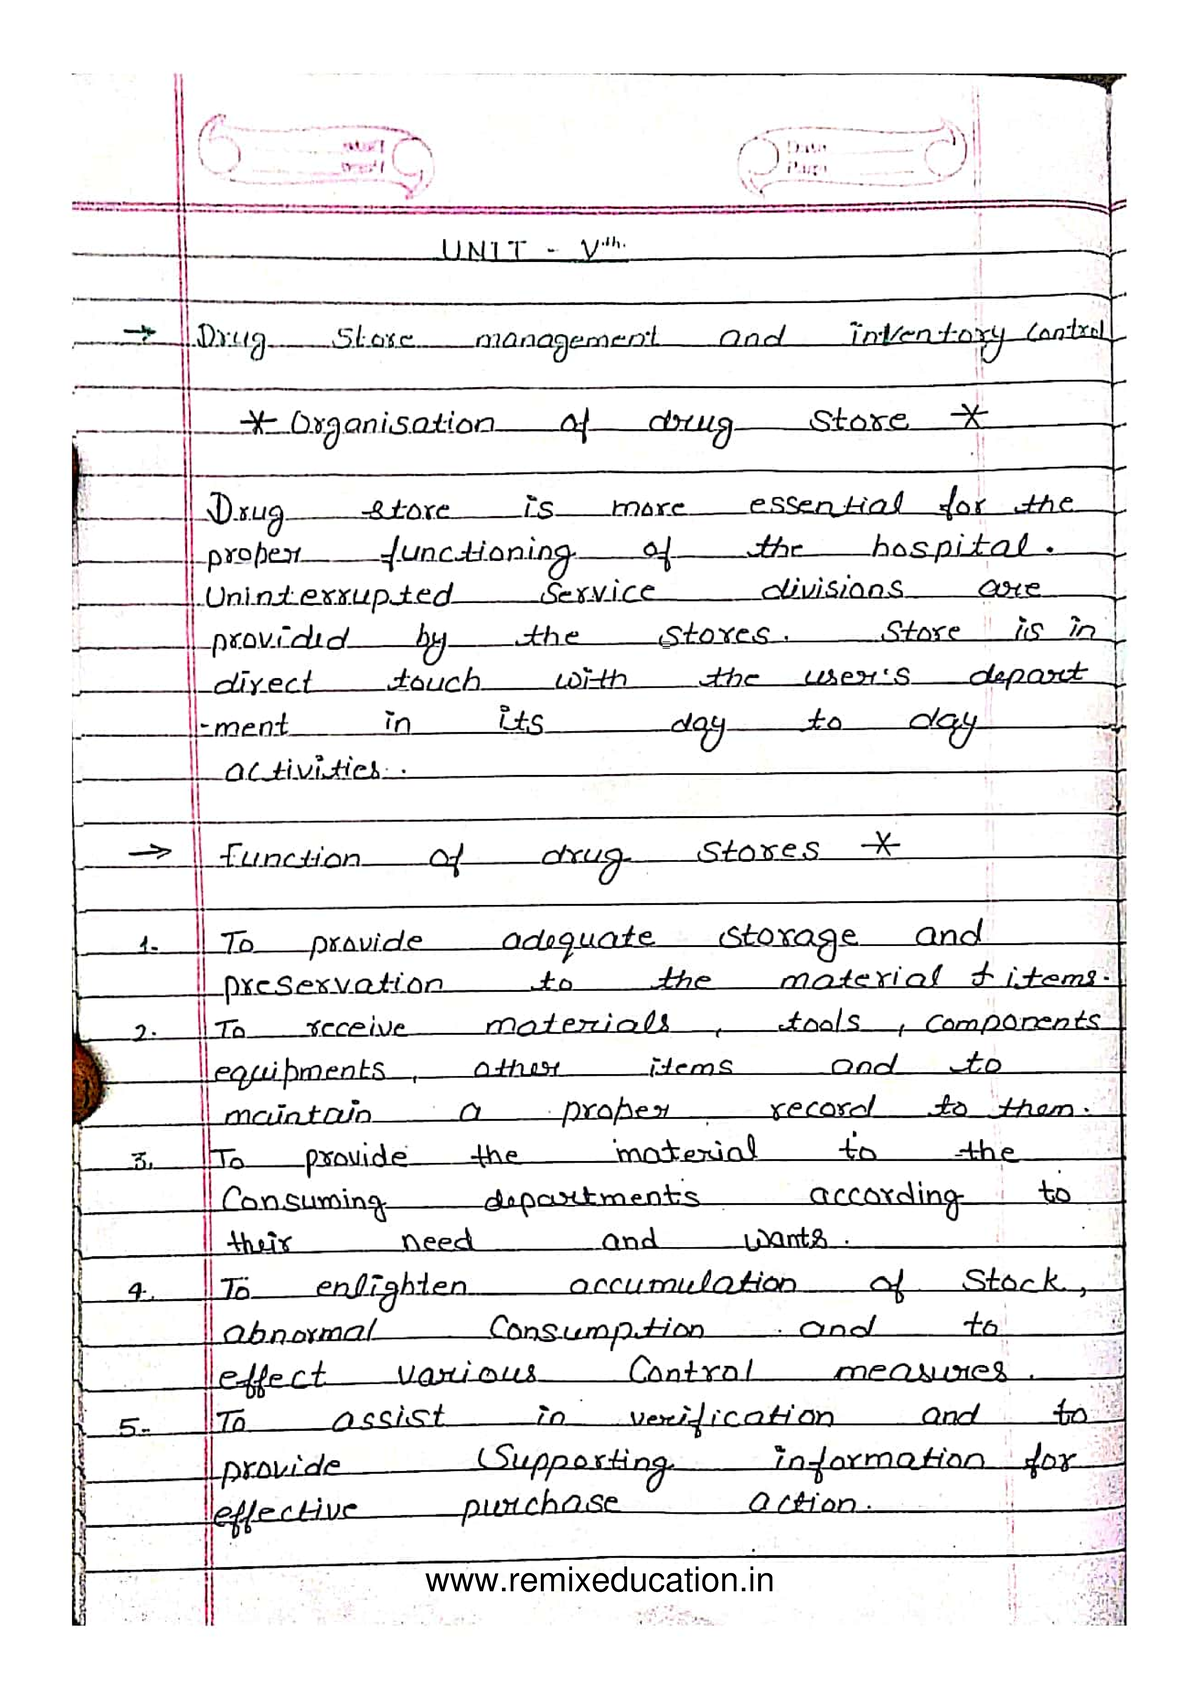 Date
Page
UNIT - Vth.
→ Drug Store management and inventory control
* Organisation of drug Store *
Drug store is more essential for the
proper functioning of the hospital.
Uninterrupted Service divisions are
provided by the stores. Store is in
direct touch with the user's depart
-ment in its day to day
activities.
→ function of drug stores *
1. To provide adequate storage and
preservation to the material & items.
2. To receive materials, tools, components
equipments, other items and to
maintain a proper record to them.
3. To provide the material to the
Consuming departments according to
their need and wants.
4. To enlighten accumulation of Stock,
abnormal Consumption and to
effect various Control measures.
5. To assist in verification and to
provide (Supporting information for
effective purchase action.
www.remixeducation.in